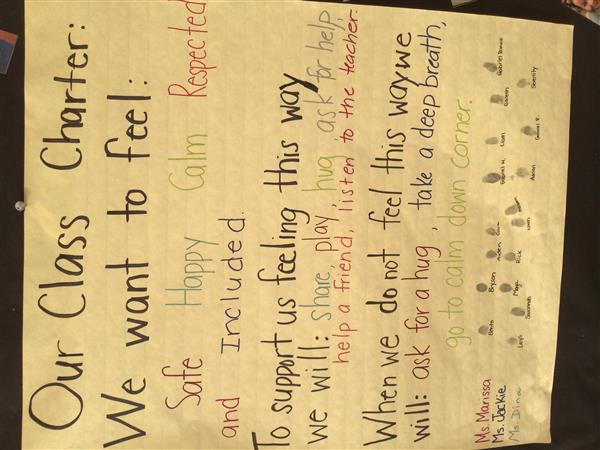 Our Class Charter:
We want to feel:
Safe Happy Calm Respected
and Included.
To support us feeling this way
we will: share, play, hug, ask for help,
help a friend, listen to the teacher.
When we do not feel this way we
will: ask for a hug, take a deep breath,
go to calm down corner.
Ms. Marissa
Ms. Jackie
Ms. Dina
Bryson
Aiden
Gabriel H.
Liam
Maya
Rick
Aaron
Gabriel
Savannah
Serenity